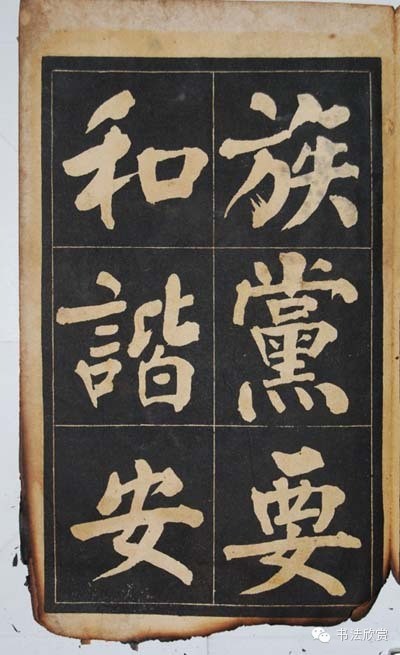 族黨要
和諧安
书法欣赏